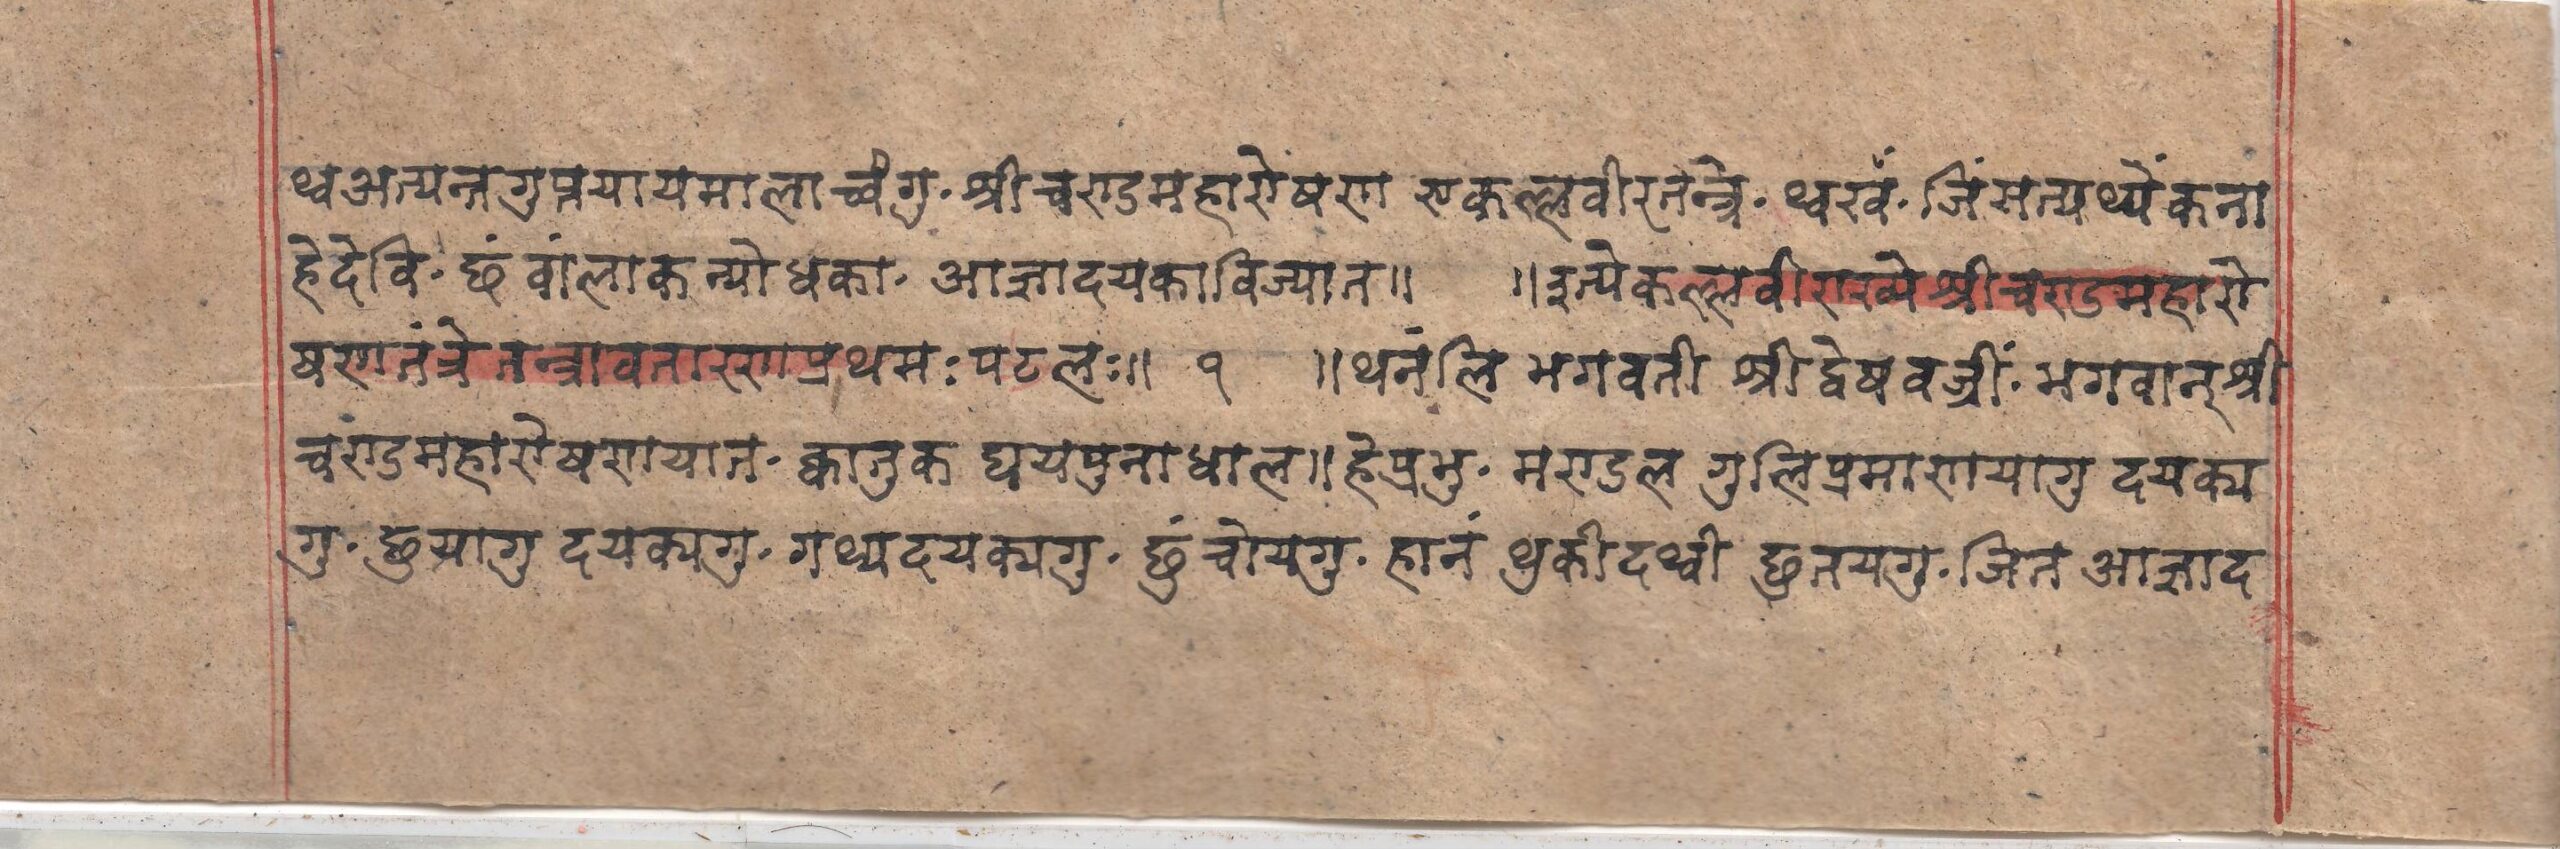 थ्वअत्यन्तगुप्तयायमालाच्वंगु· श्रीचण्डमहारोषण एकल्लवीरतन्त्रे· थ्वखँ· जिं सत्यथ्यें कना
हेदेवि· छं वांलाक न्यो धका· आज्ञादयकाविज्यात॥ ॥इत्येकल्लवीराख्ये श्रीचण्डमहारो
षणतंत्रे तन्त्रावतारणप्रथमः पटलः॥ १ ॥थनंलि भगवती श्रीद्वेषवज्रीं· भगवान् श्री
चण्डमहारोषणयात· क्वातुक घयपुनाधाल॥हेप्रभु· मण्डल गुलिप्रमाणयागु दयक्य
गु· छुयागु दयक्यगु· गथ्यदयक्यगु· छुं चोयगु· हानं थुकीदथ्वी छुतयगु· जित आज्ञाद